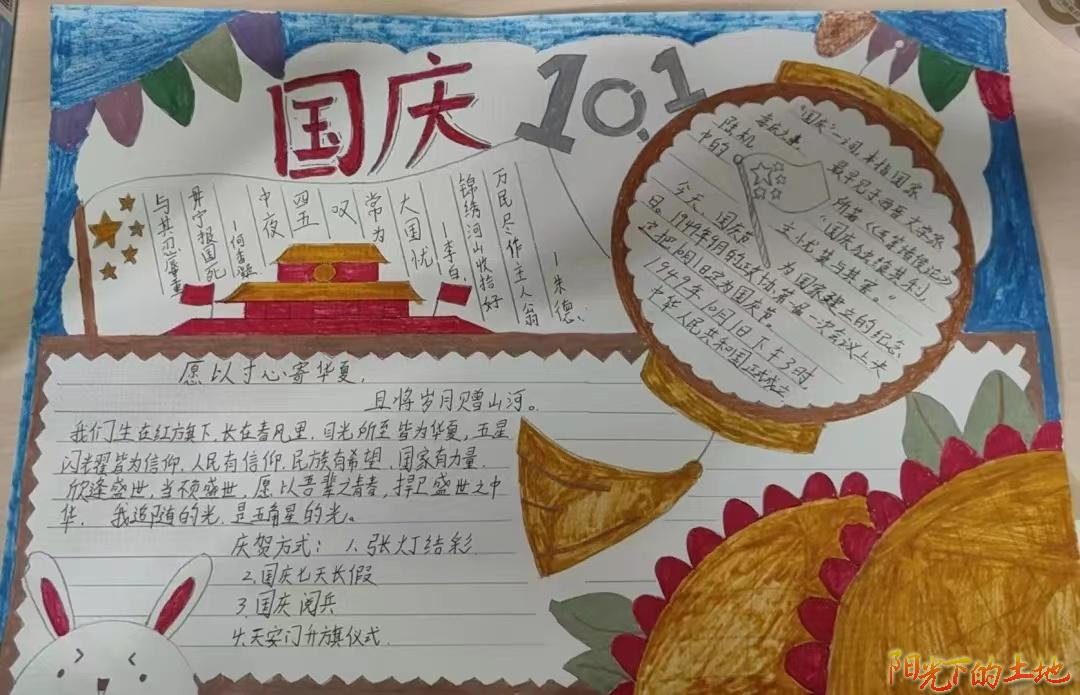 国庆 10.1
与其忍辱重
毋宁报国死
—何香凝
中夜
四五
叹
常为
大国忧
—李白
锦绣河山收拾好
万民尽作主人翁
—朱德
"国庆"一词,本指国家
最早见于西晋大文学家
陆机
所著《五等诸侯论》
中的
为国家建立的纪念
今天,国庆节
日。1949年9月的政协第一次会议上决
定把10月1日定为国庆节。
1949年10月1日下午3时,
中华人民共和国正式成立
愿以寸心寄华夏,
且将岁月赠山河。
我们生在红旗下,长在春风里,目光所至皆为华夏,五星
闪耀皆为信仰,人民有信仰,民族有希望,国家有力量,
欣逢盛世,当不负盛世,愿以吾辈之青春,捍卫盛世之中
华, 我追随的光,是五角星的光。
庆贺方式: 1.张灯结彩
2.国庆七天长假
3.国庆阅兵
4.天安门升旗仪式.
阳光下的土地